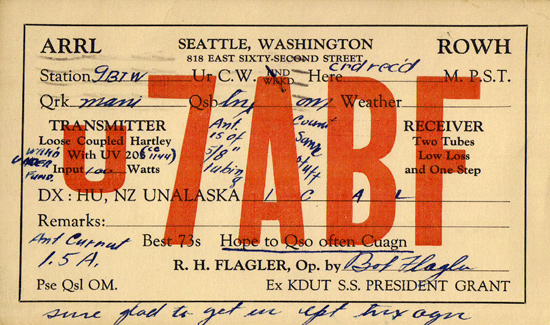 ARRL SEATTLE, WASHINGTON ROWH
818 EAST SIXTY-SECOND STREET
Station 9BTW Ur C.W. HND WRKD Here crd recid M. P.S.T.
Qrk mani Qsb Weather
u 7ABF
TRANSMITTER
Loose Coupled Hartley
With UV 206
Input 100 Watts
WITH UNDER FUND.
Ant.
is of
5/8"
tubing
Count
RECEIVER
Two Tubes
Low Loss
and One Step
DX: HU, NZ UNALASKA
Remarks:
Ant Current
1.5 A.
Best 73s Hope to Qso often Cuagn
R. H. FLAGLER, Op. by Bob Flagler
Pse Qsl OM. Ex KDUT S.S. PRESIDENT GRANT
sure glad to get ur